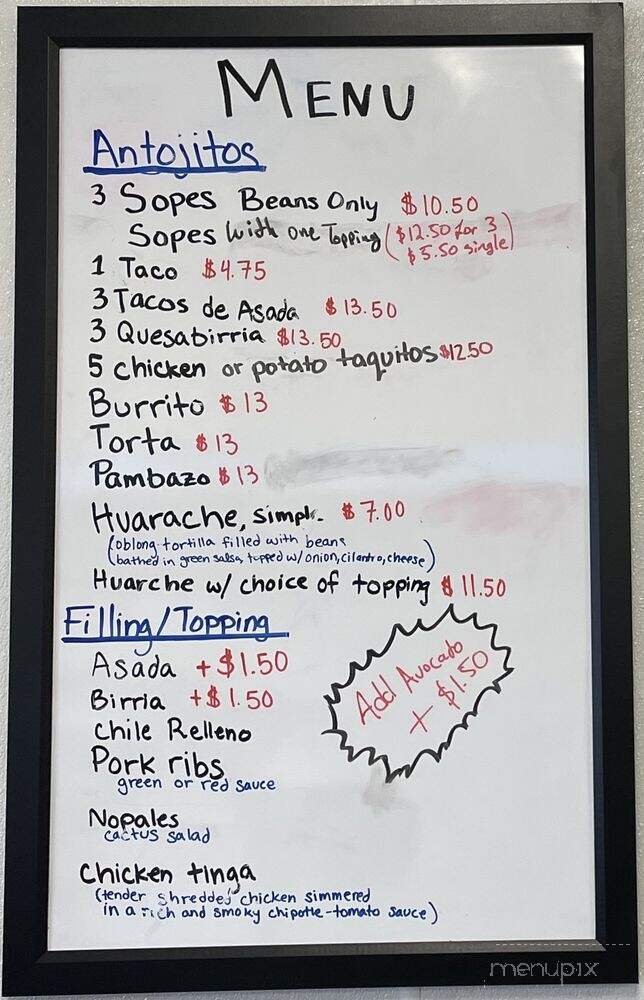 MENU
Antojitos
3 Sopes Beans Only $10.50
Sopes With one Topping ($12.50 for 3
$5.50 single)
1 Taco $4.75
3 Tacos de Asada $13.50
3 Quesabirria $13.50
5 chicken or potato taquitos $12.50
Burrito $13
Torta $13
Pambazo $13
Huarache, simpl. $7.00
(oblong tortilla filled with beans
bathed in green salsa, topped w/onion, cilantro, cheese)
Huarche w/ choice of topping $11.50
Filling/Topping
Asada +$1.50
Birria +$1.50
Chile Relleno
Pork ribs
green or red sauce
Nopales
cactus salad
Chicken tinga
(tender shredded chicken simmered
in a rich and smoky chipotle-tomato sauce)
Add Avocado
+ $1.50
menupix